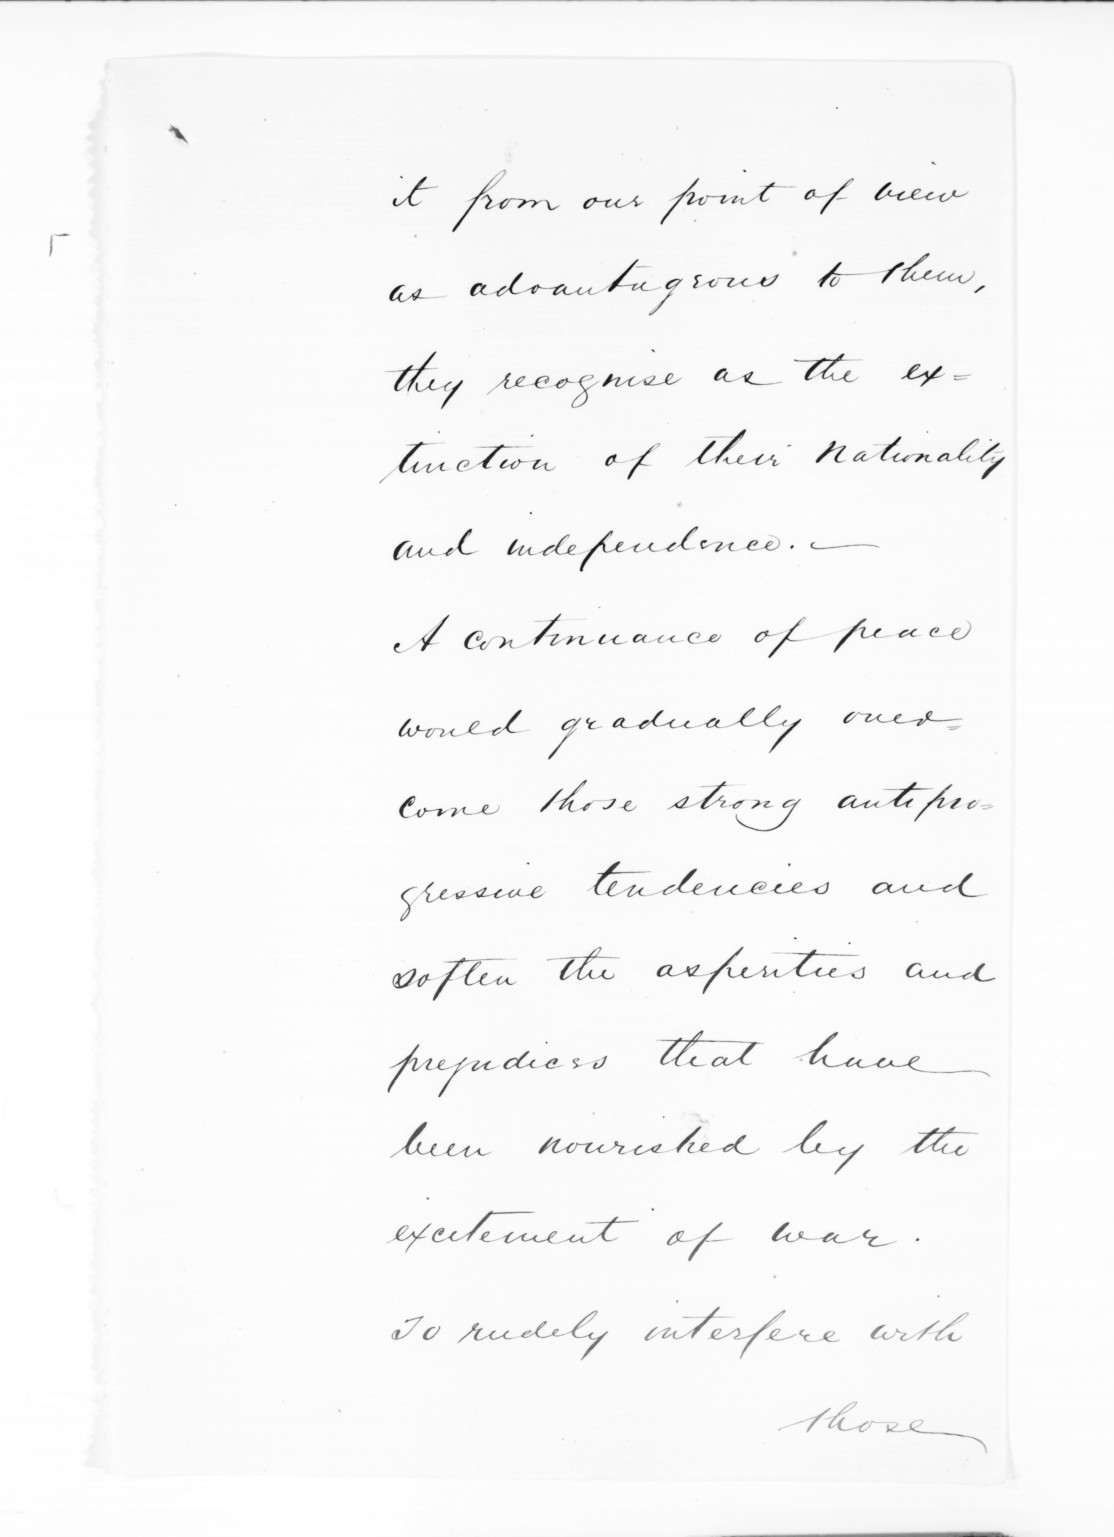 it from our point of view
as advantageous to them,
they recognise as the ex=
tinction of their Nationality
and independence. —
A continuance of peace
would gradually over=
come those strong antipro=
gressive tendencies and
soften the asperities and
prejudices that have
been nourished by the
excitement of war.
To rudely interfere with
those